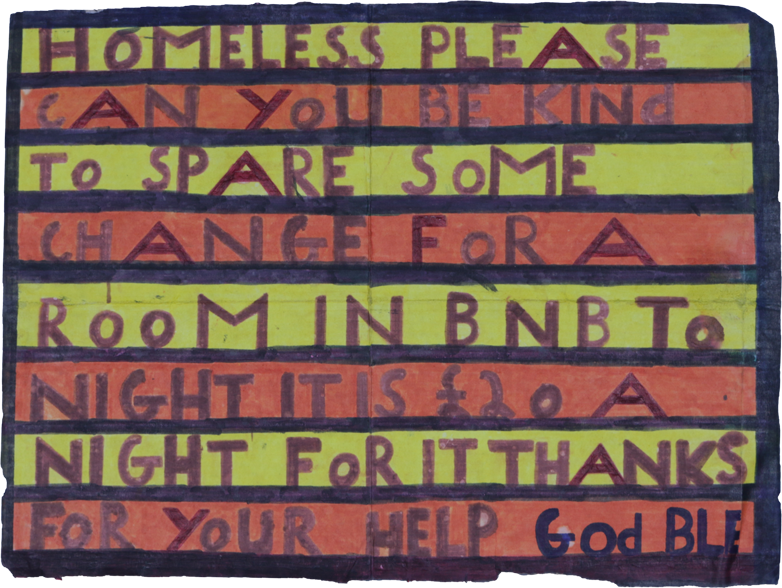 HOMELESS PLEASE
CAN YOU BE KINd
To SPARE SOME
CHANGE FOR A
ROOM IN BNB To
NIGHT IT IS £20 A
NIGHT FOR IT THANKS
FOR YOUR HELP God BLE